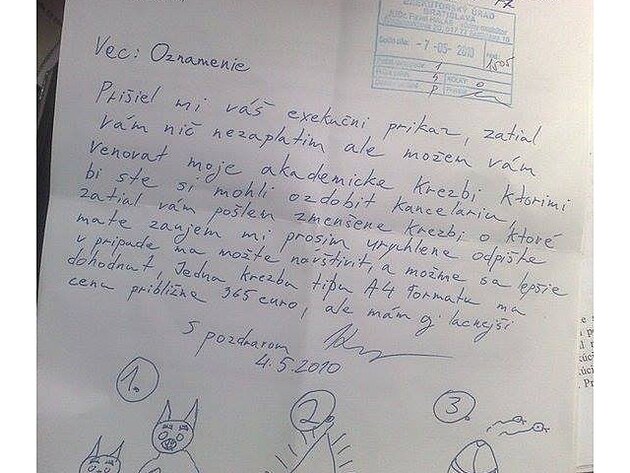 EXEKÚTORSKÝ ÚRAD
BRATISLAVA
-7-05-2010
1505
Vec: Oznamenie
Prišiel mi váš exekučni prikaz, zatial
vám nič nezaplatim ale možem vám
venovat moje akademicke krezbi ktorimi
bi ste si mohli ozdobit kancelariu,
zatial vám pošlem zmenšene krezbi o ktoré
mate zaujem mi prosim urychlene odpište
v pripade ma možte navštivit, a možme sa lepšie
dohodnat, Jedna krezba tipu A4 formatu ma
cena približne 365 euro, ale mám aj lacnejši
S pozdrarom
4.5.2010
1.
2.
3.